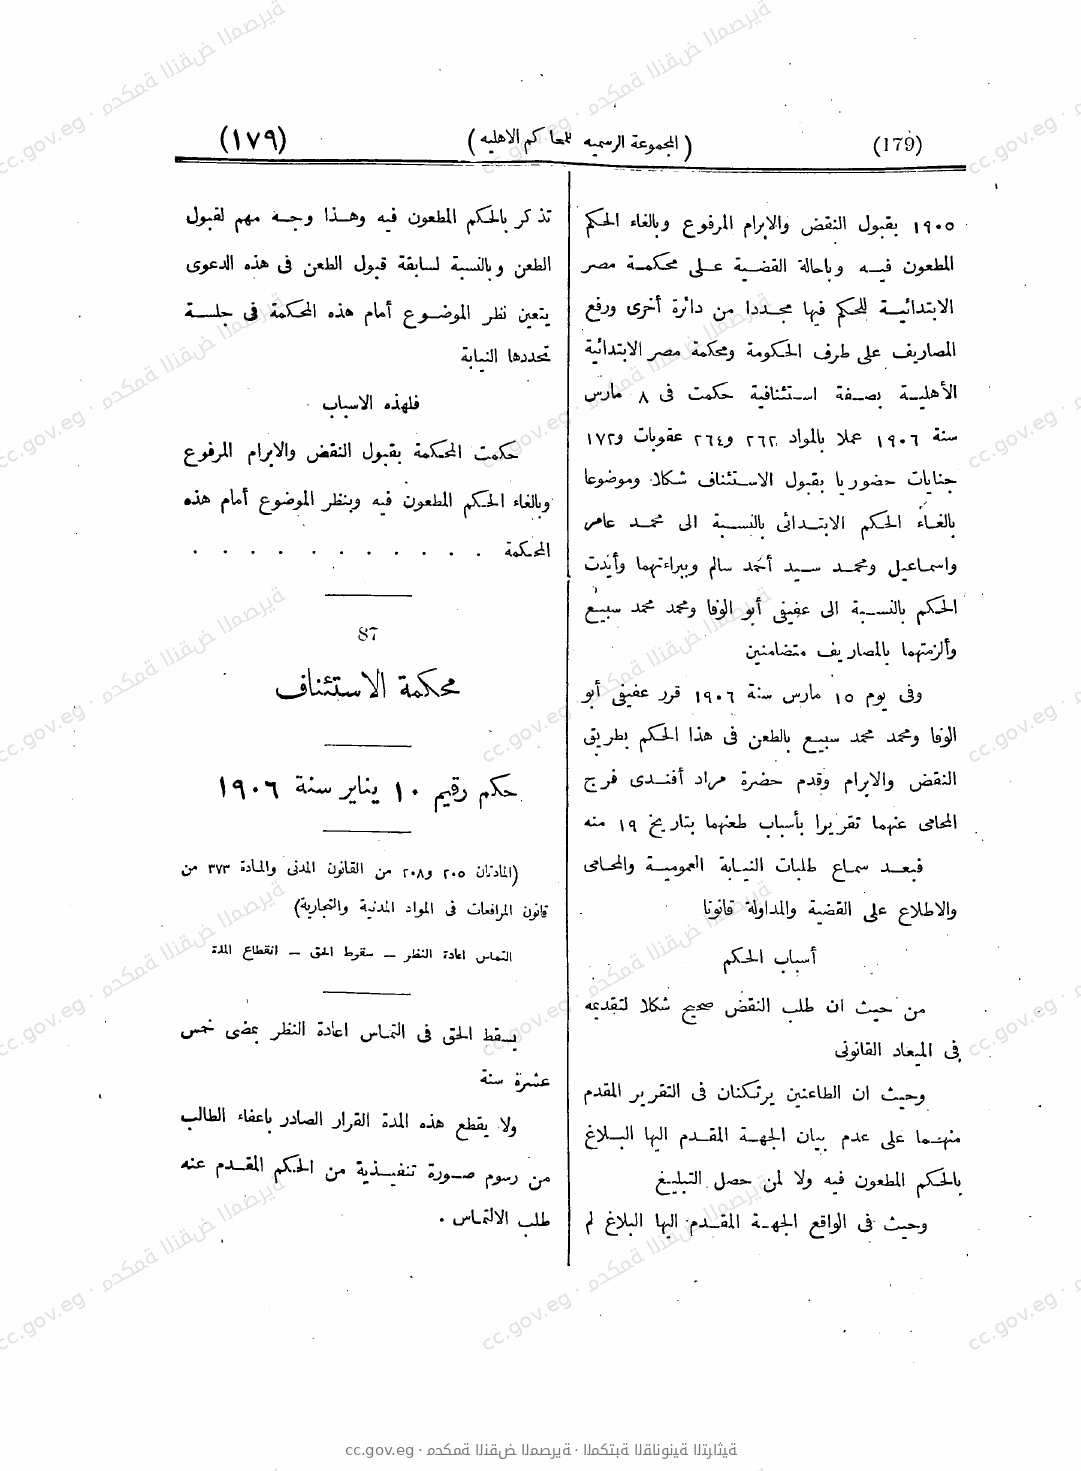 (179) (المجموعة الرسميه للمحاكم الاهليه) (١٧٩)
١٩٠٥ بقبول النقض والابرام المرفوع وبالغاء الحكم
المطعون فيه وباحالة القضية على محكمة مصر
الابتدائية للحكم فيها مجددا من دائرة أخرى ورفع
المصاريف على طرف الحكومة ومحكمة مصر الابتدائية
الأهلية بصفة استئنافية حكمت فى ٨ مارس
سنة ١٩٠٦ عملا بالمواد ٢٦٢ و٢٦٤ عقوبات و١٧٢
جنايات حضوريا بقبول الاستئناف شكلا وموضوعا
بالغاء الحكم الابتدائى بالنسبة الى محمد عامر
واسماعيل ومحمد سيد أحمد سالم وببراءتهما وأيدت
الحكم بالنسبة الى عفيفى أبو الوفا ومحمد محمد سبيع
وألزمتهما بالمصاريف متضامنين
وفى يوم ١٥ مارس سنة ١٩٠٦ قرر عفيفى أبو
الوفا ومحمد محمد سبيع بالطعن فى هذا الحكم بطريق
النقض والابرام وقدم حضرة مراد أفندى فرج
المحامى عنهما تقريرا بأسباب طعنهما بتاريخ ١٩ منه
فبعد سماع طلبات النيابة العمومية والمحامى
والاطلاع على القضية والمداولة قانونا
أسباب الحكم
من حيث ان طلب النقض صحيح شكلا لتقديمه
فى الميعاد القانونى
وحيث ان الطاعنين يرتكنان فى التقرير المقدم
منهما على عدم بيان الجهة المقدم اليها البلاغ
بالحكم المطعون فيه ولا لمن حصل التبليغ
وحيث فى الواقع الجهة المقدم اليها البلاغ لم
تذكر بالحكم المطعون فيه وهذا وجه مهم لقبول
الطعن وبالنسبة لسابقة قبول الطعن فى هذه الدعوى
يتعين نظر الموضوع أمام هذه المحكمة فى جلسة
تحددها النيابة
فلهذه الاسباب
حكمت المحكمة بقبول النقض والابرام المرفوع
وبالغاء الحكم المطعون فيه وبنظر الموضوع أمام هذه
المحكمة . . . . . . . . . . .
87
محكمة الاستئناف
حكم رقيم ١٠ يناير سنة ١٩٠٦
(المادتان ٢٠٥ و٢٠٨ من القانون المدنى والمادة ٣٧٣ من
قانون المرافعات فى المواد المدنية والتجارية)
التماس اعادة النظر – سقوط الحق – انقطاع المدة
يسقط الحق فى التماس اعادة النظر بمضى خمس
عشرة سنة
ولا يقطع هذه المدة القرار الصادر باعفاء الطالب
من رسوم صورة تنفيذية من الحكم المقدم عنه
طلب الالتماس .
cc.gov.eg · محكمة النقض المصرية · المكتبة القانونية التراثية